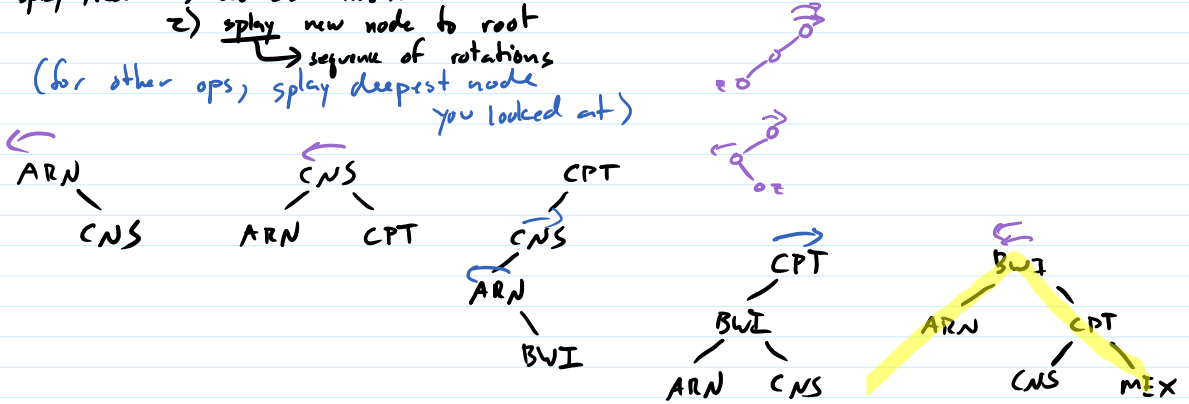 2) splay new node to root
sequence of rotations
(for other ops, splay deepest node
you looked at)
z
z
ARN
CNS
CNS
ARN CPT
CPT
CNS
ARN
BWI
CPT
BWI
ARN CNS
BWI
ARN CPT
CNS MEX